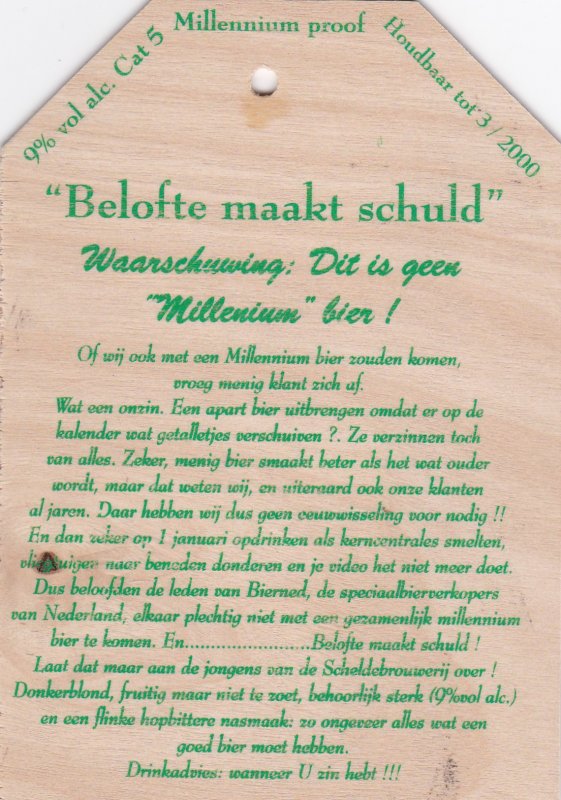 Millennium proof
9% vol alc. Cat 5
Houdbaar tot 3/2000
“Belofte maakt schuld”
Waarschuwing: Dit is geen
"Millenium" bier !
Of wij ook met een Millennium bier zouden komen,
vroeg menig klant zich af.
Wat een onzin. Een apart bier uitbrengen omdat er op de
kalender wat getalletjes verschuiven ?. Ze verzinnen toch
van alles. Zeker, menig bier smaakt beter als het wat ouder
wordt, maar dat weten wij, en uiteraard ook onze klanten
al jaren. Daar hebben wij dus geen eeuwwisseling voor nodig !!
En dan zeker op 1 januari opdrinken als kerncentrales smelten,
vliegtuigen naar beneden donderen en je video het niet meer doet.
Dus beloofden de leden van Bierned, de speciaalbierverkopers
van Nederland, elkaar plechtig niet met een gezamenlijk millennium
bier te komen. En........................Belofte maakt schuld !
Laat dat maar aan de jongens van de Scheldebrouwerij over !
Donkerblond, fruitig maar niet te zoet, behoorlijk sterk (9%vol alc.)
en een flinke hopbittere nasmaak: zo ongeveer alles wat een
goed bier moet hebben.
Drinkadvies: wanneer U zin hebt !!!